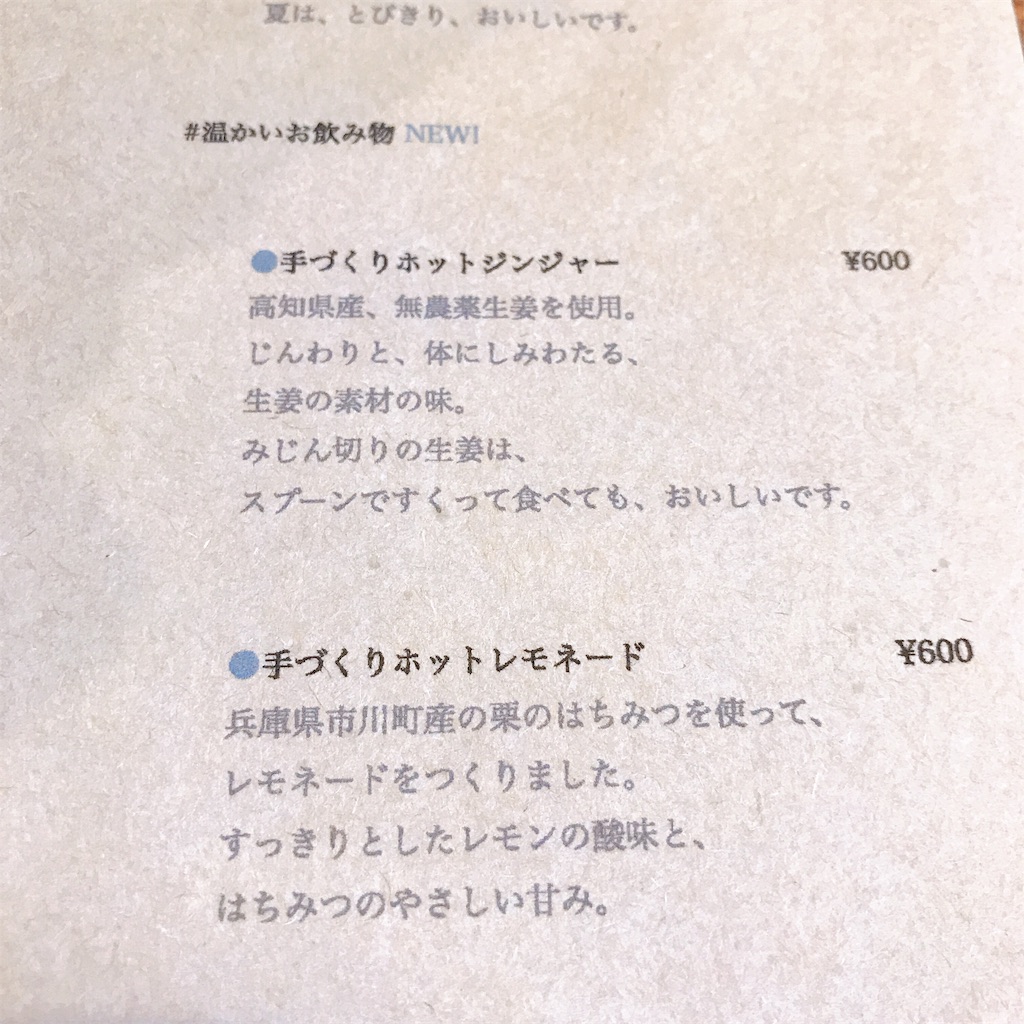 夏は、とびきり、おいしいです。
#温かいお飲み物 NEW!
●手づくりホットジンジャー ¥600
高知県産、無農薬生姜を使用。
じんわりと、体にしみわたる、
生姜の素材の味。
みじん切りの生姜は、
スプーンですくって食べても、おいしいです。
●手づくりホットレモネード ¥600
兵庫県市川町産の栗のはちみつを使って、
レモネードをつくりました。
すっきりとしたレモンの酸味と、
はちみつのやさしい甘み。